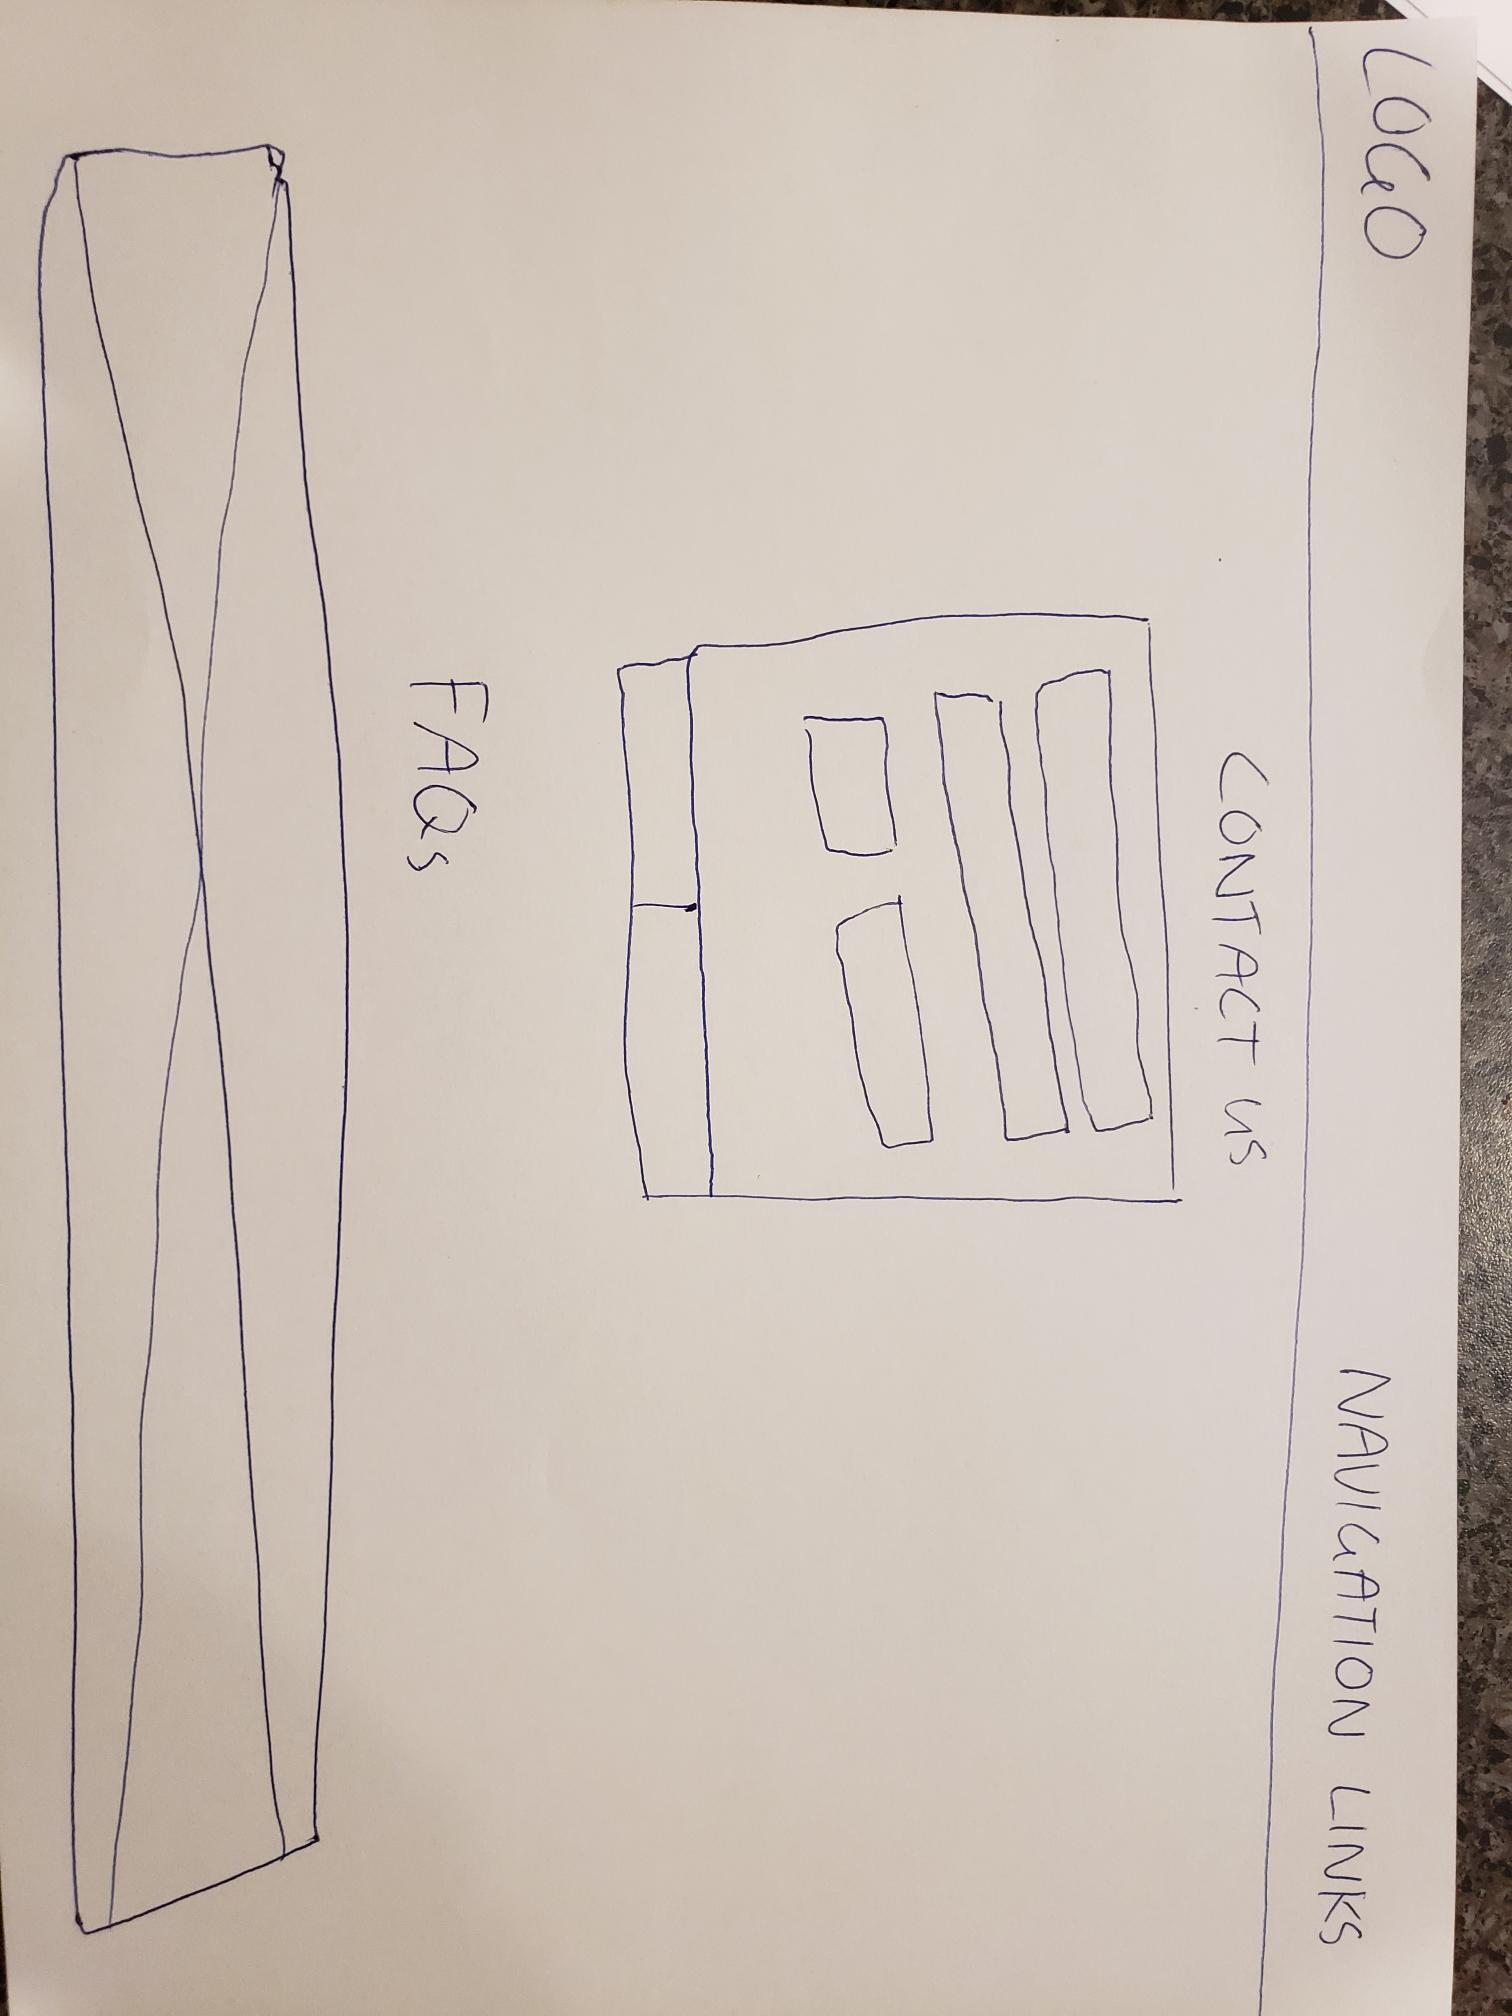 LOGO
NAVIGATION LINKS
CONTACT US
FAQs